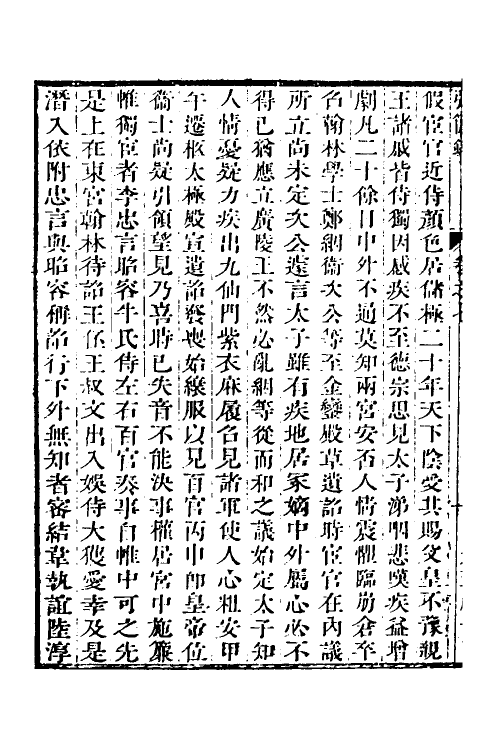 假宦官近侍顏色居儲極二十年天下陰受其賜文皇不豫親
王諸戚皆侍獨因感疾不至德宗思見太子涕咽悲嘆疾益增
劇凡二十餘日中外不通莫知兩宮安否人情震懼臨崩倉卒
召翰林學士鄭絪衞次公等至金鑾殿草遺詔時宦官在內議
所立尚未定次公遽言太子雖有疾地居冢嫡中外屬心必不
得已猶應立廣陵王不然必亂絪等從而和之議始定太子知
人情憂疑力疾出九仙門紫衣麻履召見諸軍使人心粗安甲
午遷柩太極殿宣遺詔發喪始縗服以見百官丙申卽皇帝位
衞士尚疑引領望見乃喜時已失音不能決事權居宮中施簾
帷獨宦者李忠言昭容牛氏侍左右百官奏事自帷中可之先
是上在東宮翰林待詔王伾王叔文出入娛侍大獲愛幸及是
潛入依附忠言與昭容稱詔行下外無知者密結韋執誼陸淳